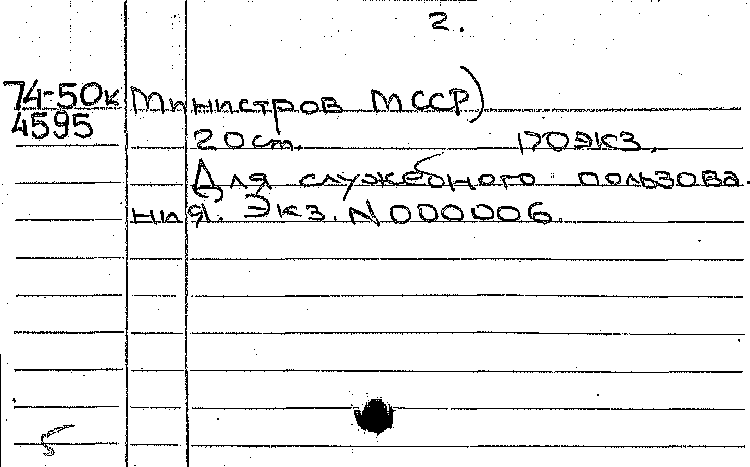 2.
74-50к Министров МССР)
4595
20 ст. 170 экз.
Для служебного пользова
ния. Экз. N 000006.
5